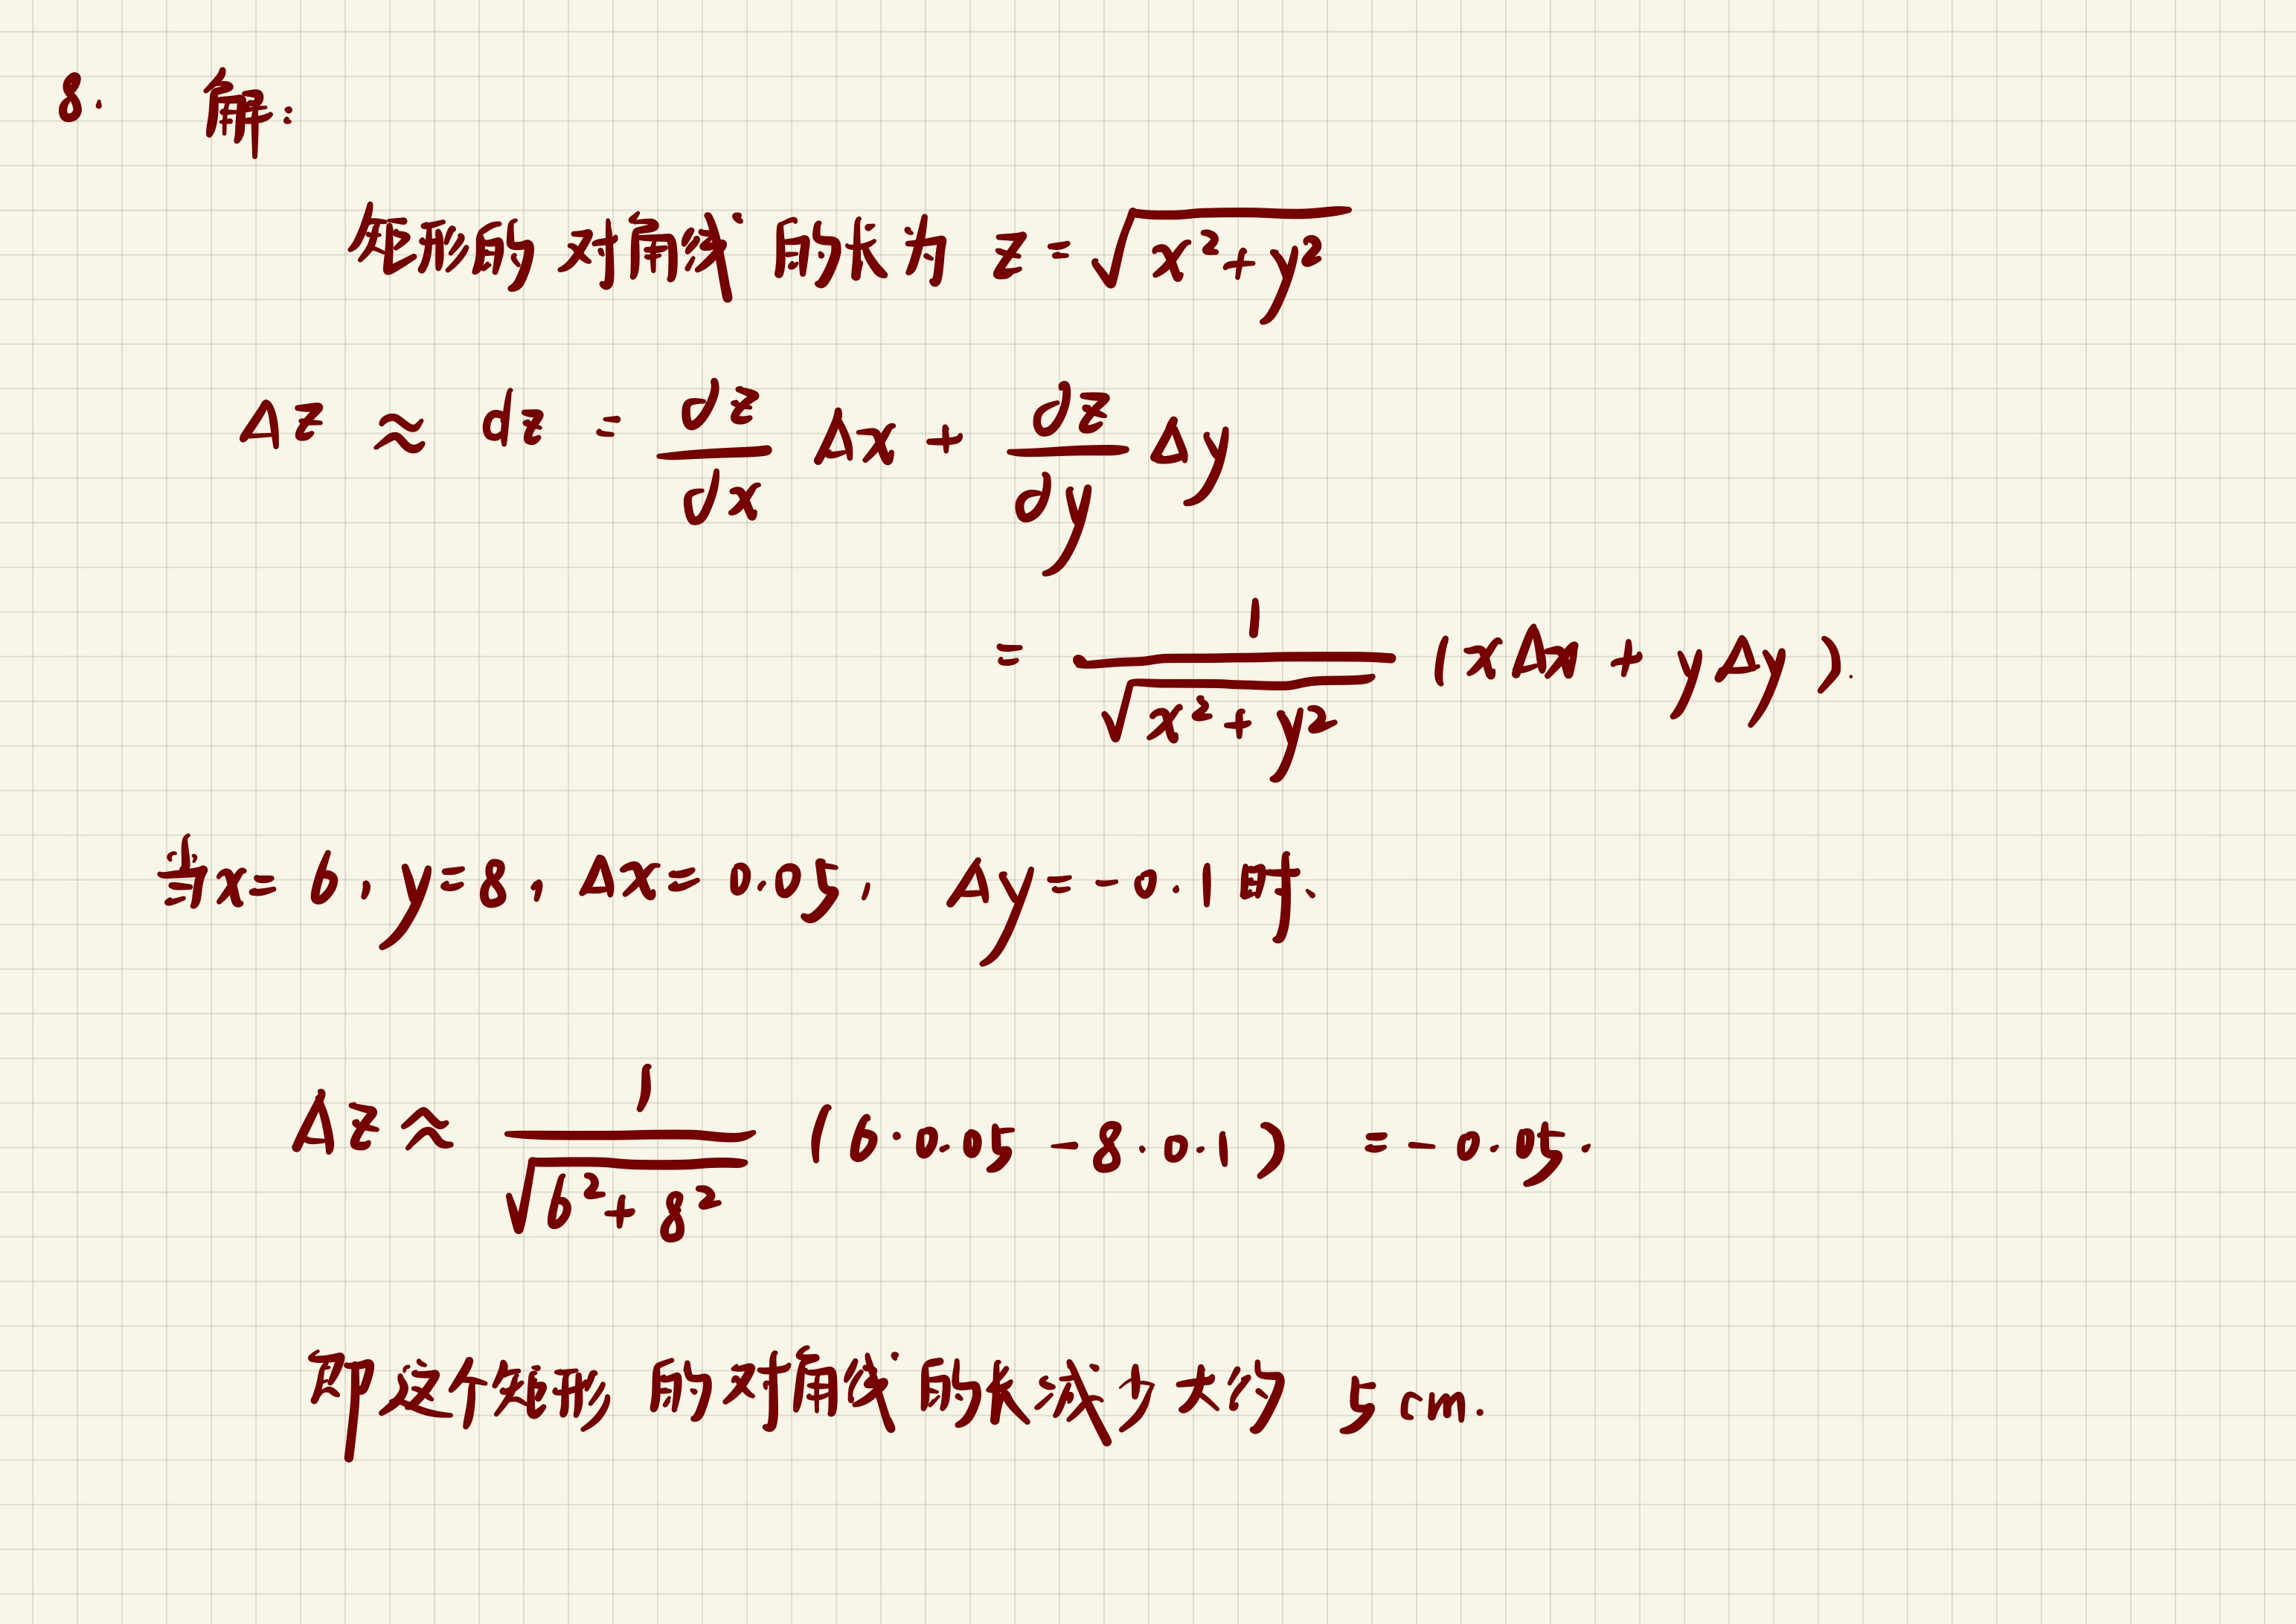 8. 解:
矩形的对角线的长为 z = √(x²+y²)
Δz ≈ dz = ∂z/∂x Δx + ∂z/∂y Δy
= 1/√(x²+y²) (xΔx + yΔy).
当x=6, y=8, Δx=0.05, Δy=-0.1时、
Δz ≈ 1/√(6²+8²) (6·0.05-8·0.1) =-0.05.
即这个矩形的对角线的长减少大约 5cm.